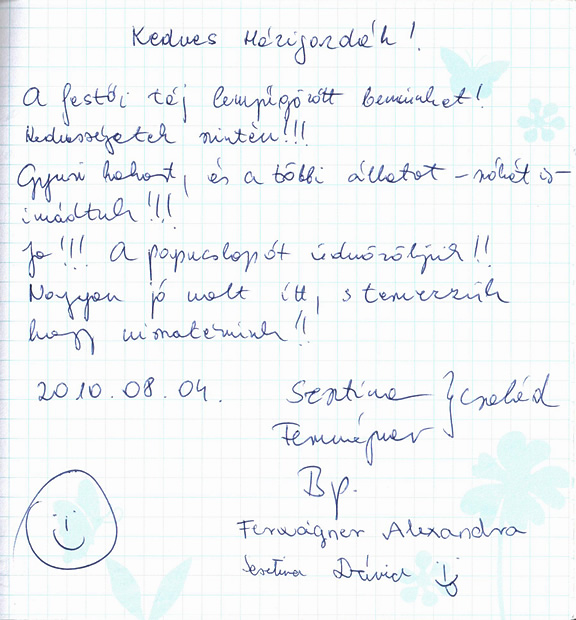 Kedves Házigazdák!
A festői táj lenyűgözött bennünket!
Kedvességetek szintén!!!
Gyuri kakast, és a többi állatot – rókát is –
imádtuk!!!
Ja!!! A papucslopót üdvözöljük!!
Nagyon jó volt itt, s tervezzük
hogy visszatérünk!!
2010.08.04.
Sestina } család
Fenwágner
Bp.
Fenwágner Alexandra
Dávid